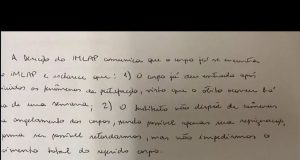 A Direção do IMLAP comunica que o corpo já se encontra
IMLAP e esclarece que: 1) O corpo já deu entrada após
os fenômenos de putrefação, visto que o óbito ocorreu há
de uma semana; 2) O Instituto não dispõe de
congelamento dos corpos, sendo possível apenas sua refrigeração,
forma ser possível retardarmos, mas não impedirmos o
total do referido corpo.